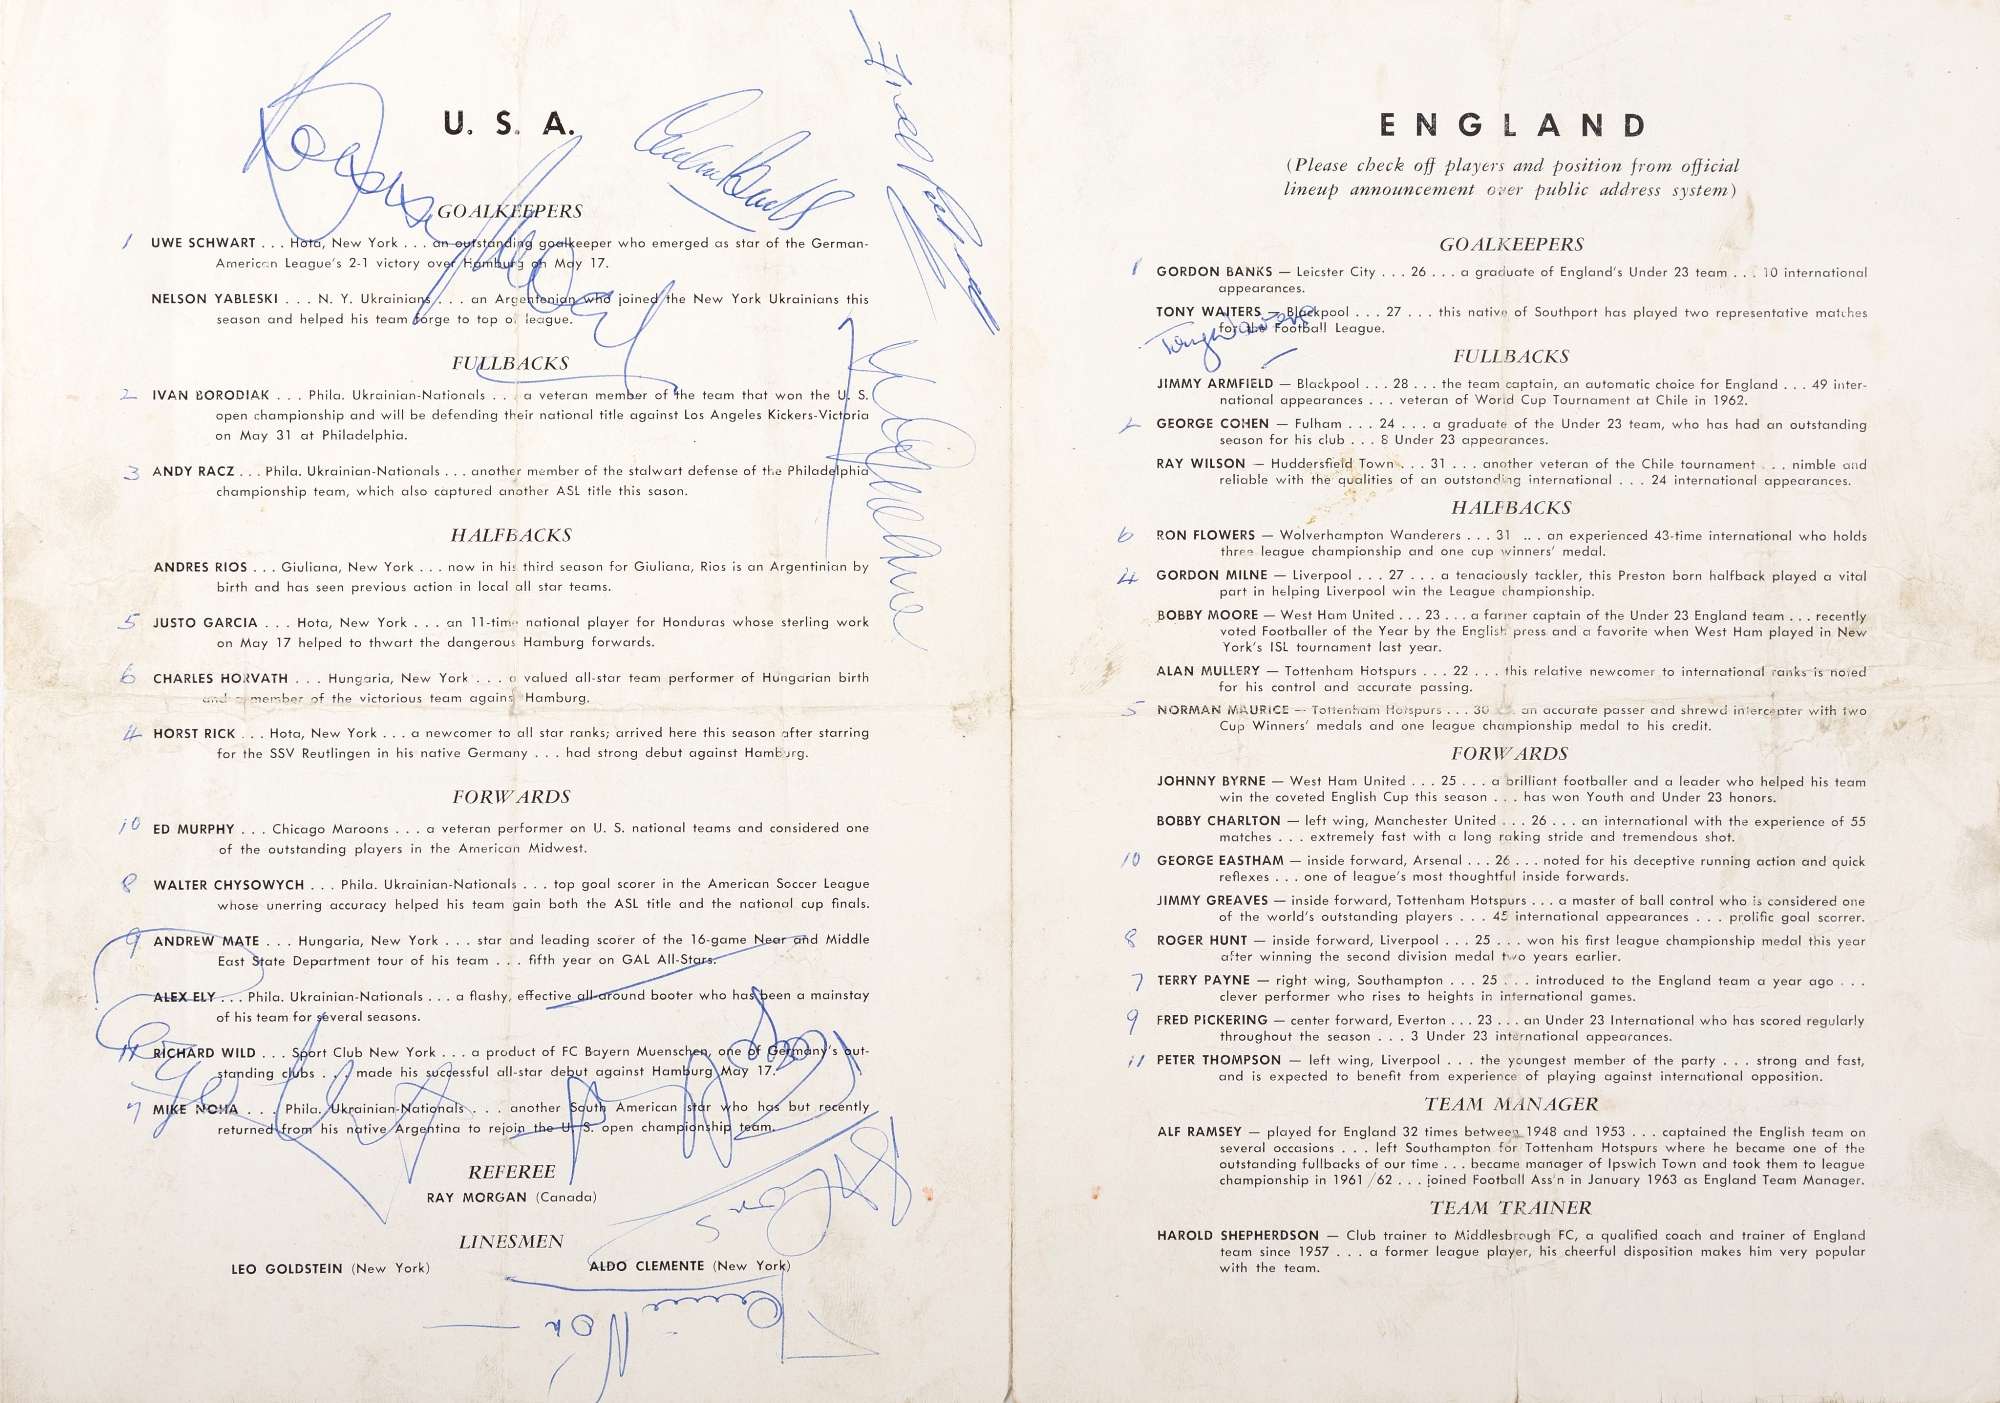 U. S. A.
GOALKEEPERS
1 UWE SCHWART . . . Hota, New York . . . an outstanding goalkeeper who emerged as star of the German-
American League's 2-1 victory over Hamburg on May 17.
NELSON YABLESKI . . . N. Y. Ukrainians . . . an Argentenian who joined the New York Ukrainians this
season and helped his team forge to top of league.
FULLBACKS
2 IVAN BORODIAK . . . Phila. Ukrainian-Nationals . . . a veteran member of the team that won the U. S.
open championship and will be defending their national title against Los Angeles Kickers-Victoria
on May 31 at Philadelphia.
3 ANDY RACZ . . . Phila. Ukrainian-Nationals . . . another member of the stalwart defense of the Philadelphia
championship team, which also captured another ASL title this sason.
HALFBACKS
ANDRES RIOS . . . Giuliana, New York . . . now in his third season for Giuliana, Rios is an Argentinian by
birth and has seen previous action in local all star teams.
5 JUSTO GARCIA . . . Hota, New York . . . an 11-time national player for Honduras whose sterling work
on May 17 helped to thwart the dangerous Hamburg forwards.
6 CHARLES HORVATH . . . Hungaria, New York . . . a valued all-star team performer of Hungarian birth
and a member of the victorious team against Hamburg.
4 HORST RICK . . . Hota, New York . . . a newcomer to all star ranks; arrived here this season after starring
for the SSV Reutlingen in his native Germany . . . had strong debut against Hamburg.
FORWARDS
10 ED MURPHY . . . Chicago Maroons . . . a veteran performer on U. S. national teams and considered one
of the outstanding players in the American Midwest.
8 WALTER CHYSOWYCH . . . Phila. Ukrainian-Nationals . . . top goal scorer in the American Soccer League
whose unerring accuracy helped his team gain both the ASL title and the national cup finals.
9 ANDREW MATE . . . Hungaria, New York . . . star and leading scorer of the 16-game Near and Middle
East State Department tour of his team . . . fifth year on GAL All-Stars.
ALEX ELY . . . Phila. Ukrainian-Nationals . . . a flashy, effective all-around booter who has been a mainstay
of his team for several seasons.
11 RICHARD WILD . . . Sport Club New York . . . a product of FC Bayern Muenschen, one of Germany's out-
standing clubs . . . made his successful all-star debut against Hamburg May 17.
7 MIKE NOHA . . . Phila. Ukrainian-Nationals . . . another South American star who has but recently
returned from his native Argentina to rejoin the U. S. open championship team.
REFEREE
RAY MORGAN (Canada)
LINESMEN
LEO GOLDSTEIN (New York) ALDO CLEMENTE (New York)
ENGLAND
(Please check off players and position from official
lineup announcement over public address system)
GOALKEEPERS
1 GORDON BANKS — Leicster City . . . 26 . . . a graduate of England's Under 23 team . . . 10 international
appearances.
TONY WAITERS — Blackpool . . . 27 . . . this native of Southport has played two representative matches
for the Football League.
Tony Waiters
FULLBACKS
JIMMY ARMFIELD — Blackpool . . . 28 . . . the team captain, an automatic choice for England . . . 49 inter-
national appearances . . . veteran of World Cup Tournament at Chile in 1962.
2 GEORGE COHEN — Fulham . . . 24 . . . a graduate of the Under 23 team, who has had an outstanding
season for his club . . . 8 Under 23 appearances.
RAY WILSON — Huddersfield Town . . . 31 . . . another veteran of the Chile tournament . . . nimble and
reliable with the qualities of an outstanding international . . . 24 international appearances.
HALFBACKS
6 RON FLOWERS — Wolverhampton Wanderers . . . 31 . . . an experienced 43-time international who holds
three league championship and one cup winners' medal.
4 GORDON MILNE — Liverpool . . . 27 . . . a tenaciously tackler, this Preston born halfback played a vital
part in helping Liverpool win the League championship.
BOBBY MOORE — West Ham United . . . 23 . . . a farmer captain of the Under 23 England team . . . recently
voted Footballer of the Year by the English press and a favorite when West Ham played in New
York's ISL tournament last year.
ALAN MULLERY — Tottenham Hotspurs . . . 22 . . . this relative newcomer to international ranks is noted
for his control and accurate passing.
5 NORMAN MAURICE — Tottenham Hotspurs . . . 30 . . . an accurate passer and shrewd intercepter with two
Cup Winners' medals and one league championship medal to his credit.
FORWARDS
JOHNNY BYRNE — West Ham United . . . 25 . . . a brilliant footballer and a leader who helped his team
win the coveted English Cup this season . . . has won Youth and Under 23 honors.
BOBBY CHARLTON — left wing, Manchester United . . . 26 . . . an international with the experience of 55
matches . . . extremely fast with a long raking stride and tremendous shot.
10 GEORGE EASTHAM — inside forward, Arsenal . . . 26 . . . noted for his deceptive running action and quick
reflexes . . . one of league's most thoughtful inside forwards.
JIMMY GREAVES — inside forward, Tottenham Hotspurs . . . a master of ball control who is considered one
of the world's outstanding players . . . 45 international appearances . . . prolific goal scorrer.
8 ROGER HUNT — inside forward, Liverpool . . . 25 . . . won his first league championship medal this year
after winning the second division medal two years earlier.
7 TERRY PAYNE — right wing, Southampton . . . 25 . . . introduced to the England team a year ago . . .
clever performer who rises to heights in international games.
9 FRED PICKERING — center forward, Everton . . . 23 . . . an Under 23 International who has scored regularly
throughout the season . . . 3 Under 23 international appearances.
11 PETER THOMPSON — left wing, Liverpool . . . the youngest member of the party . . . strong and fast,
and is expected to benefit from experience of playing against international opposition.
TEAM MANAGER
ALF RAMSEY — played for England 32 times between 1948 and 1953 . . . captained the English team on
several occasions . . . left Southampton for Tottenham Hotspurs where he became one of the
outstanding fullbacks of our time . . . became manager of Ipswich Town and took them to league
championship in 1961/62 . . . joined Football Ass'n in January 1963 as England Team Manager.
TEAM TRAINER
HAROLD SHEPHERDSON — Club trainer to Middlesbrough FC, a qualified coach and trainer of England
team since 1957 . . . a former league player, his cheerful disposition makes him very popular
with the team.